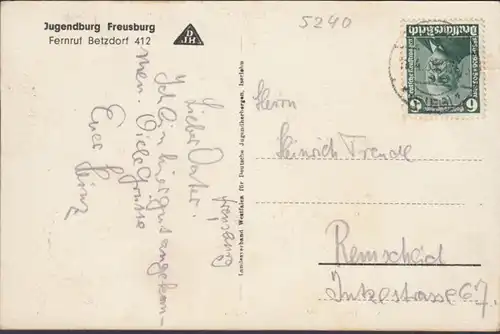 Jugendburg Freusburg
Fernruf Betzdorf 412
DJH
5240
Freusburg
Lieber Vater.
Ich bin hier gut angekom-
men. Viele Grüsse
Euer Heinz
Landesverband Westfalen für Deutsche Jugendherbergen, Iserlohn
Deutsches Reich
6
Herrn
Heinrich
Remscheid
67.